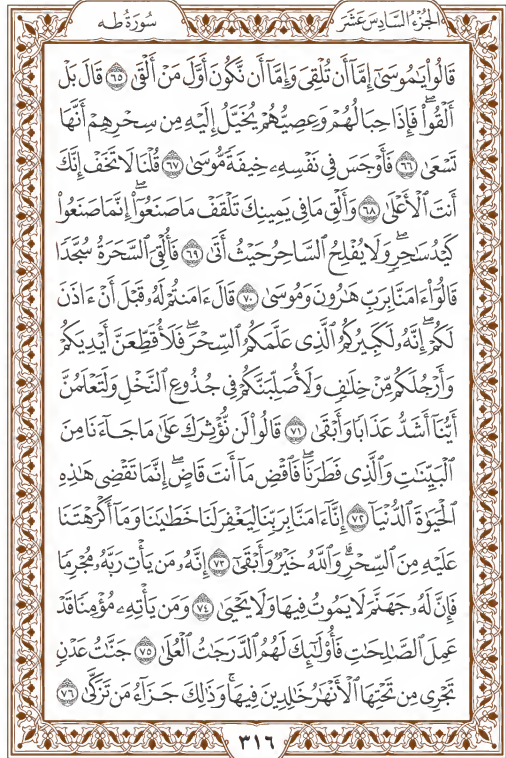 الجزء السادس عشر
سورة طه
قَالُوا۟ يَٰمُوسَىٰٓ إِمَّآ أَن تُلْقِىَ وَإِمَّآ أَن نَّكُونَ أَوَّلَ مَنْ أَلْقَىٰ ٦٥ قَالَ بَلْ
أَلْقُوا۟ۖ فَإِذَا حِبَالُهُمْ وَعِصِيُّهُمْ يُخَيَّلُ إِلَيْهِ مِن سِحْرِهِمْ أَنَّهَا
تَسْعَىٰ ٦٦ فَأَوْجَسَ فِى نَفْسِهِۦ خِيفَةً مُّوسَىٰ ٦٧ قُلْنَا لَا تَخَفْ إِنَّكَ
أَنتَ ٱلْأَعْلَىٰ ٦٨ وَأَلْقِ مَا فِى يَمِينِكَ تَلْقَفْ مَا صَنَعُوٓا۟ۖ إِنَّمَا صَنَعُوا۟
كَيْدُ سَٰحِرٍۖ وَلَا يُفْلِحُ ٱلسَّاحِرُ حَيْثُ أَتَىٰ ٦٩ فَأُلْقِىَ ٱلسَّحَرَةُ سُجَّدًا
قَالُوٓا۟ ءَامَنَّا بِرَبِّ هَٰرُونَ وَمُوسَىٰ ٧٠ قَالَ ءَامَنتُمْ لَهُۥ قَبْلَ أَنْ ءَاذَنَ
لَكُمْۖ إِنَّهُۥ لَكَبِيرُكُمُ ٱلَّذِى عَلَّمَكُمُ ٱلسِّحْرَۖ فَلَأُقَطِّعَنَّ أَيْدِيَكُمْ
وَأَرْجُلَكُم مِّنْ خِلَٰفٍ وَلَأُصَلِّبَنَّكُمْ فِى جُذُوعِ ٱلنَّخْلِ وَلَتَعْلَمُنَّ
أَيُّنَآ أَشَدُّ عَذَابًا وَأَبْقَىٰ ٧١ قَالُوا۟ لَن نُّؤْثِرَكَ عَلَىٰ مَا جَآءَنَا مِنَ
ٱلْبَيِّنَٰتِ وَٱلَّذِى فَطَرَنَاۖ فَٱقْضِ مَآ أَنتَ قَاضٍۖ إِنَّمَا تَقْضِى هَٰذِهِ
ٱلْحَيَوٰةَ ٱلدُّنْيَآ ٧٢ إِنَّآ ءَامَنَّا بِرَبِّنَا لِيَغْفِرَ لَنَا خَطَٰيَٰنَا وَمَآ أَكْرَهْتَنَا
عَلَيْهِ مِنَ ٱلسِّحْرِۗ وَٱللَّهُ خَيْرٌ وَأَبْقَىٰٓ ٧٣ إِنَّهُۥ مَن يَأْتِ رَبَّهُۥ مُجْرِمًا
فَإِنَّ لَهُۥ جَهَنَّمَ لَا يَمُوتُ فِيهَا وَلَا يَحْيَىٰ ٧٤ وَمَن يَأْتِهِۦ مُؤْمِنًا قَدْ
عَمِلَ ٱلصَّٰلِحَٰتِ فَأُو۟لَٰٓئِكَ لَهُمُ ٱلدَّرَجَٰتُ ٱلْعُلَىٰ ٧٥ جَنَّٰتُ عَدْنٍ
تَجْرِى مِن تَحْتِهَا ٱلْأَنْهَٰرُ خَٰلِدِينَ فِيهَاۚ وَذَٰلِكَ جَزَآءُ مَن تَزَكَّىٰ ٧٦
٣١٦